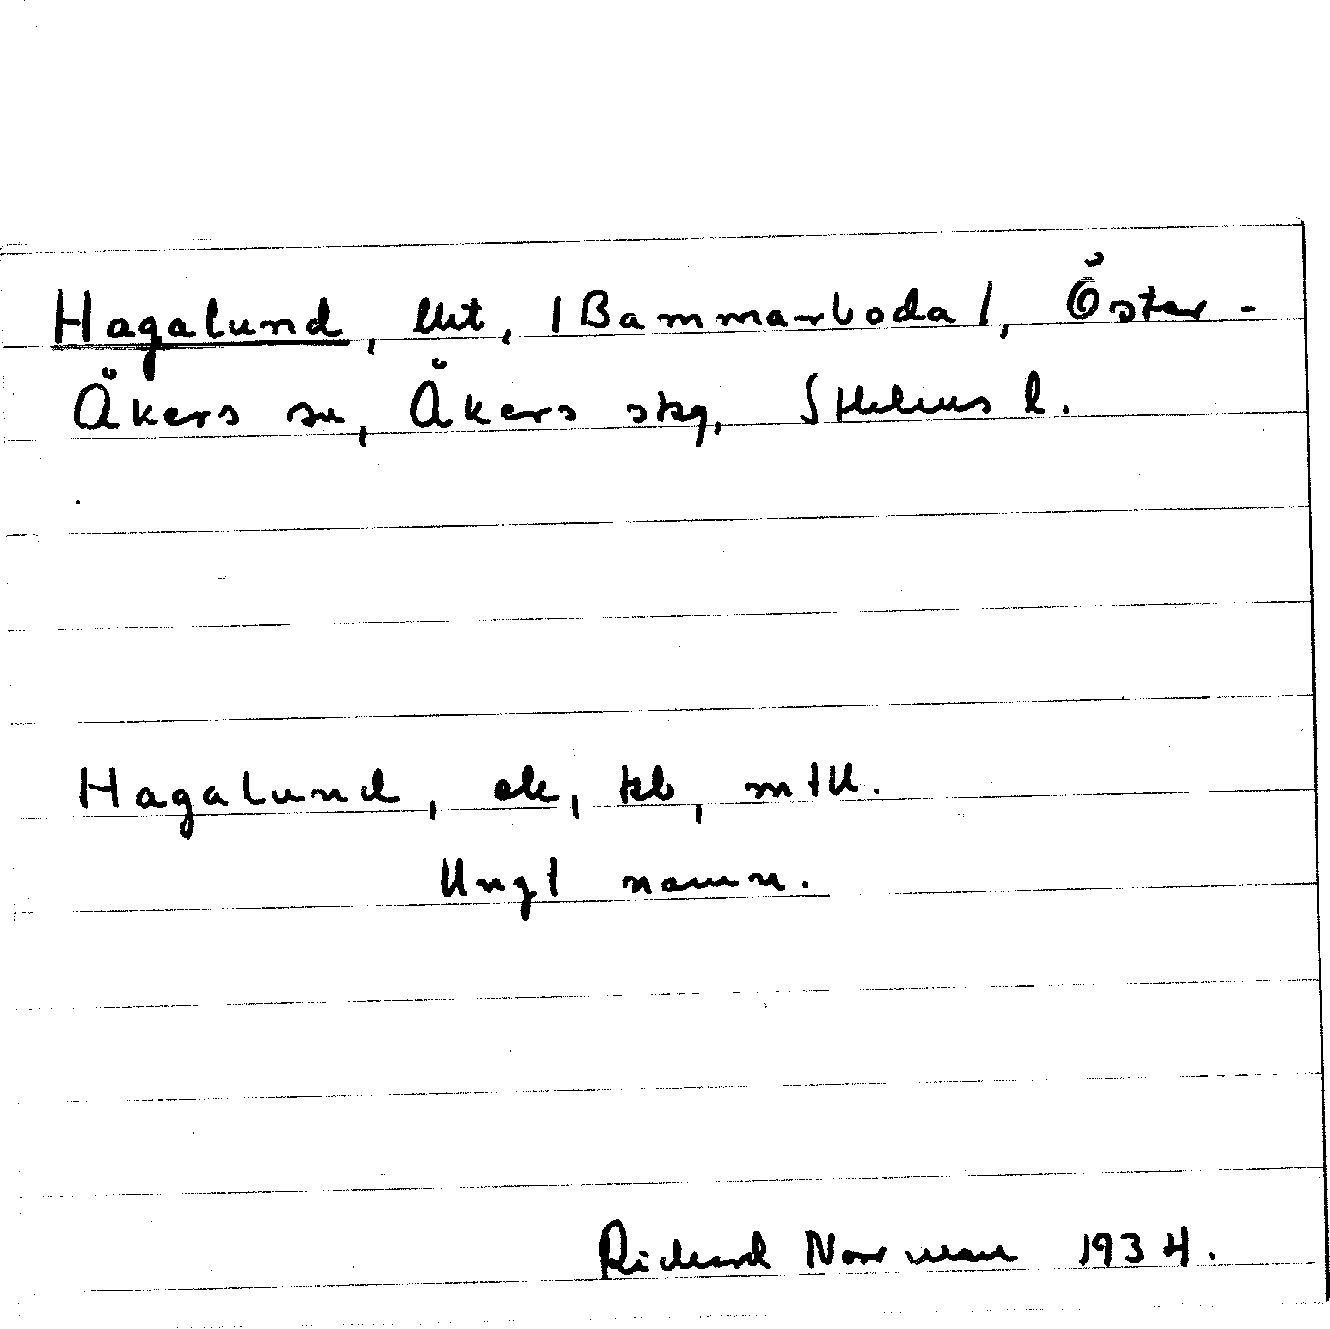 Hagalund, lht, /Bammarboda/, Öster-
Åkers sn, Åkers skg, Sthlms l.
Hagalund, ek, kb, mtll.
Ungt namn.
Richard Norrman 1934.